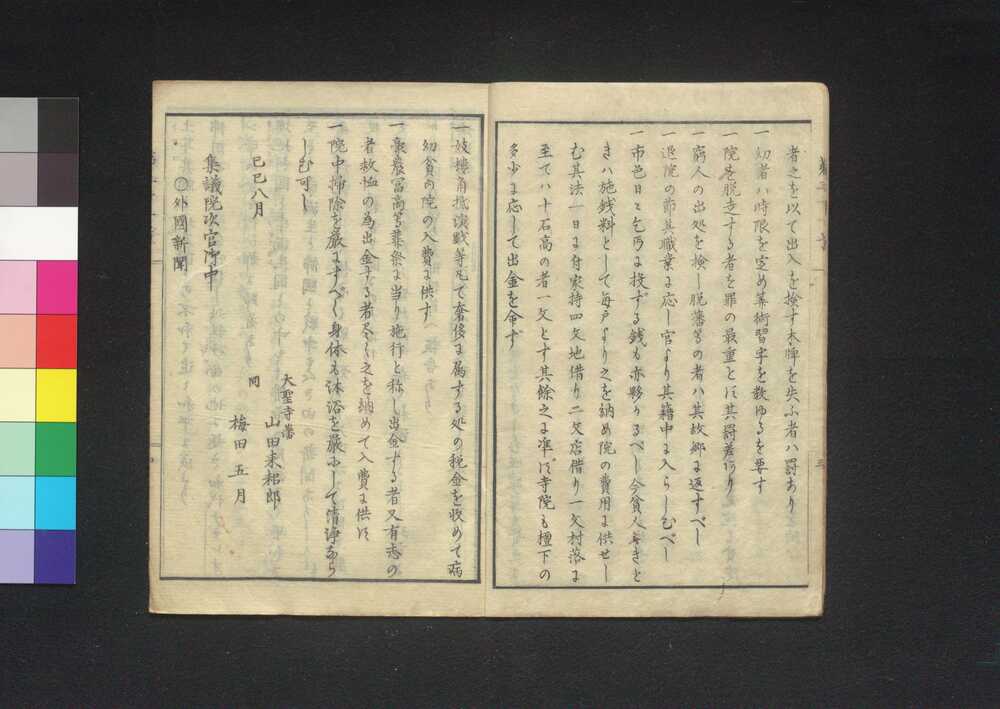 者之を以て出入を検す木牌を失ふ者ハ罰あり
一幼者ハ時限を定め算術習字を教ゆるを要す
一院を脱走する者を罪の最重とす其罰差あり
一窮人の出処を検し脱藩等の者ハ其故郷に返すべし
一退院の節其職業に応し官より其籍中に入らしむべし
一市邑日々乞丐に投ずる銭も亦夥かるべし今貧人無きと
きハ施銭料として毎戸より之を納め院の費用に供せし
む其法一日に付家持四文地借り二文店借り一文村落に
至てハ十石高の者一文とす其餘之に準ず寺院も檀下の
多少に応して出金を命ず
一妓樓角抵演戯等凡て奢侈に属する処の税金を収めて病
幼貧内院の入費に供す
一豪農冨商等葬祭に当り施行と称し出金する者又有志の
者救恤の為出金する者尽く之を納めて入費に供す
一院中掃除を厳にすべく身体も沐浴を厳にして清浄なら
しむ可し
巳巳八月
大聖寺藩
山田耒耜郎
同
梅田五月
集議院次官御中
○外國新聞